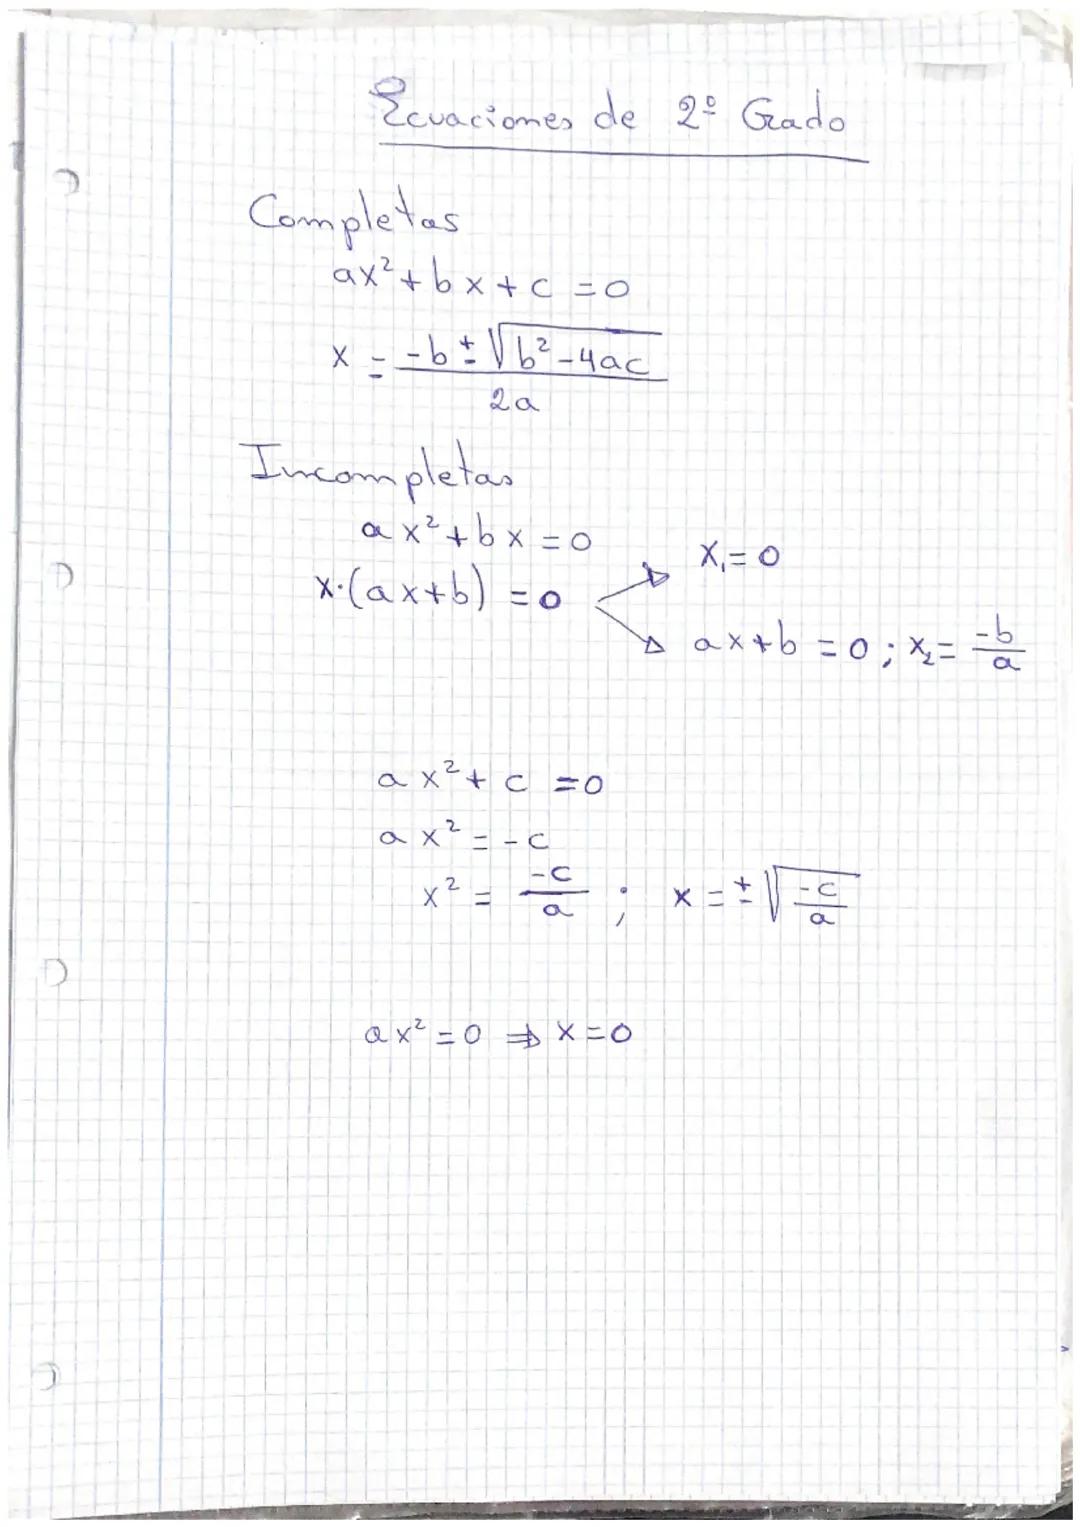 Ecuaciones de 2º Grado
Completas
ax² + bx + c = 0
x = -b ± √b² - 4ac
2a
Incompletas
ax² + bx = 0
x₁ = 0
x·(ax+b) = 0
ax+b = 0 ; x₂ = -b/a
ax² + c = 0
ax² = -c
x² = -c/a ; x = ± √-c/a
ax² = 0 ⇒ x = 0